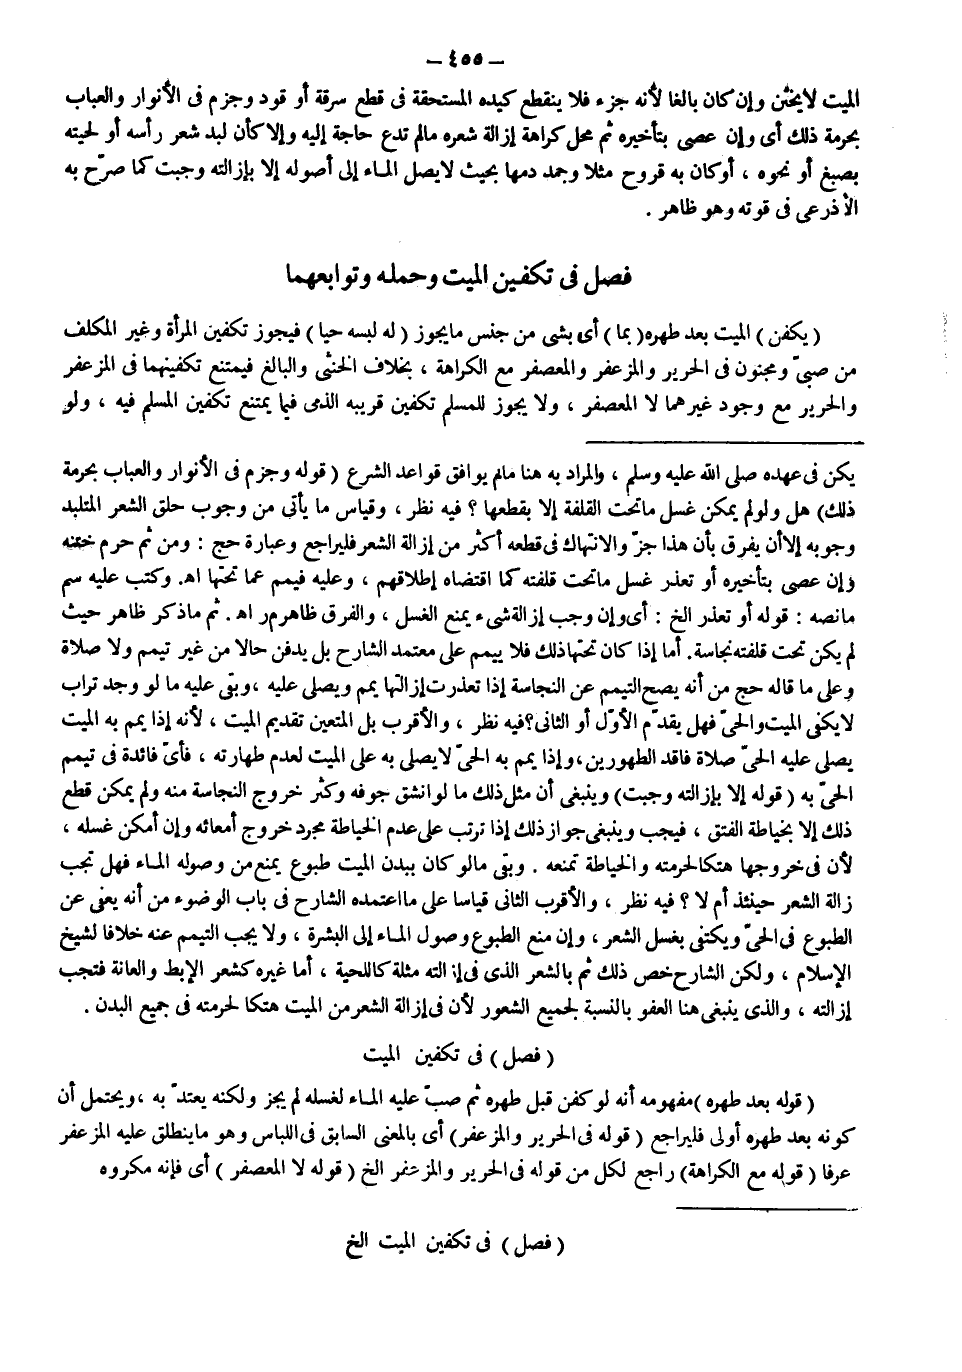 — ٤٥٥ —
الميت لايختن وإن كان بالغا لأنه جزء فلا ينقطع كيده المستحقة فى قطع سرقة أو قود وجزم فى الأنوار والعباب
بحرمة ذلك أى وإن عصى بتأخيره ثم محل كراهة إزالة شعره مالم تدع حاجة إليه وإلا كأن لبد شعر رأسه أو لحيته
بصبغ أو نحوه ، أو كان به قروح مثلا وجمد دمها بحيث لايصل الماء إلى أصوله إلا بإزالته وجبت كما صرّح به
الأذرعى فى قوته وهو ظاهر .
فصل فى تكفين الميت وحمله وتوابعهما
( يكفن ) الميت بعد طهره ( بما ) أى بشى من جنس مايجوز ( له لبسه حيا ) فيجوز تكفين المرأة وغير المكلف
من صبىّ ومجنون فى الحرير والمزعفر والمعصفر مع الكراهة ، بخلاف الخنثى والبالغ فيمتنع تكفينهما فى المزعفر
والحرير مع وجود غيرهما لا المعصفر ، ولا يجوز للمسلم تكفين قريبه الذمى فيما يمتنع تكفين المسلم فيه ، ولو
يكن فى عهده صلى الله عليه وسلم ، والمراد به هنا مالم يوافق قواعد الشرع ( قوله وجزم فى الأنوار والعباب بحرمة
ذلك) هل ولو لم يمكن غسل ماتحت القلفة إلا بقطعها ؟ فيه نظر ، وقياس ما يأتى من وجوب حلق الشعر المتلبد
وجوبه إلا أن يفرق بأن هذا جزّ والانتهاك فى قطعه أكثر من إزالة الشعر فليراجع وعبارة حج : ومن ثم حرم ختنه
وإن عصى بتأخيره أو تعذر غسل ماتحت قلفته كما اقتضاه إطلاقهم ، وعليه فيمم عما تحتها اه. وكتب عليه سم
مانصه : قوله أو تعذر الخ : أى وإن وجب إزالة شىء يمنع الغسل ، والفرق ظاهر م ر اه . ثم ماذكر ظاهر حيث
لم يكن تحت قلفته نجاسة. أما إذا كان تحتها ذلك فلا ييمم على معتمد الشارح بل يدفن حالا من غير تيمم ولا صلاة
وعلى ما قاله حج من أنه يصح التيمم عن النجاسة إذا تعذرت إزالتها يمم ويصلى عليه ، وبقى عليه ما لو وجد تراب
لايكفى الميت والحىّ فهل يقدّم الأوّل أو الثانى؟ فيه نظر ، والأقرب بل المتعين تقديم الميت ، لأنه إذا يمم به الميت
يصلى عليه الحىّ صلاة فاقد الطهورين، وإذا يمم به الحىّ لايصلى به على الميت لعدم طهارته ، فأىّ فائدة فى تيمم
الحىّ به ( قوله إلا بإزالته وجبت) وينبغى أن مثل ذلك ما لو انشق جوفه وكثر خروج النجاسة منه ولم يمكن قطع
ذلك إلا بخياطة الفتق ، فيجب وينبغى جواز ذلك إذا ترتب على عدم الخياطة مجرد خروج أمعائه وإن أمكن غسله ،
لأن فى خروجها هتكا لحرمته والخياطة تمنعه . وبقى مالو كان ببدن الميت طبوع يمنع من وصوله الماء فهل تجب
زالة الشعر حينئذ أم لا ؟ فيه نظر ، والأقرب الثانى قياسا على ما اعتمده الشارح فى باب الوضوء من أنه يعفى عن
الطبوع فى الحىّ ويكتفى بغسل الشعر ، وإن منع الطبوع وصول الماء إلى البشرة ، ولا يجب التيمم عنه خلافا لشيخ
الإسلام ، ولكن الشارح خص ذلك ثم بالشعر الذى فى إزالته مثلة كاللحية ، أما غيره كشعر الإبط والعانة فتجب
إزالته ، والذى ينبغى هنا العفو بالنسبة لجميع الشعور لأن فى إزالة الشعر من الميت هتكا لحرمته فى جميع البدن .
( فصل ) فى تكفين الميت
( قوله بعد طهره ) مفهومه أنه لو كفن قبل طهره ثم صبّ عليه الماء لغسله لم يجز ولكنه يعتدّ به ، ويحتمل أن
كونه بعد طهره أولى فليراجع ( قوله فى الحرير والمزعفر) أى بالمعنى السابق فى اللباس وهو ماينطلق عليه المزعفر
عرفا ( قوله مع الكراهة) راجع لكل من قوله فى الحرير والمزعفر الخ ( قوله لا المعصفر ) أى فإنه مكروه
( فصل ) فى تكفين الميت الخ